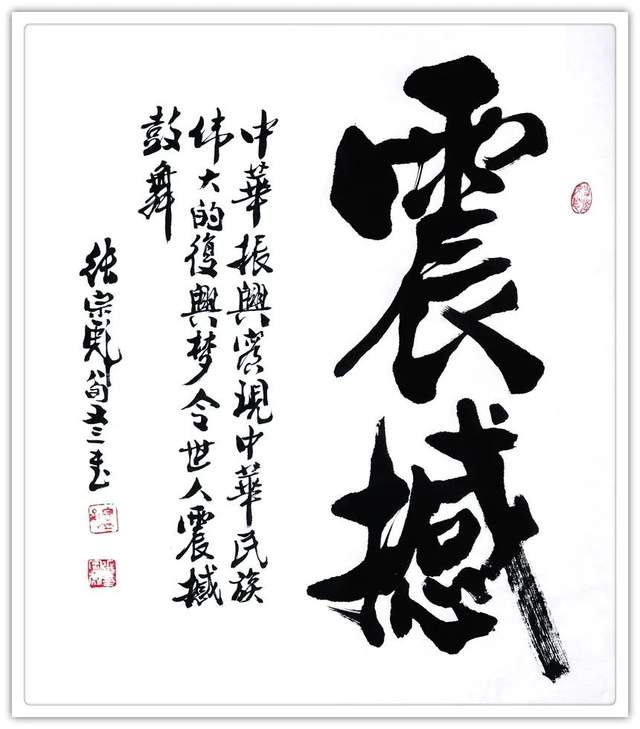 震撼
中華振興實現中華民族
伟大的復興梦令世人震撼
鼓舞
张宗